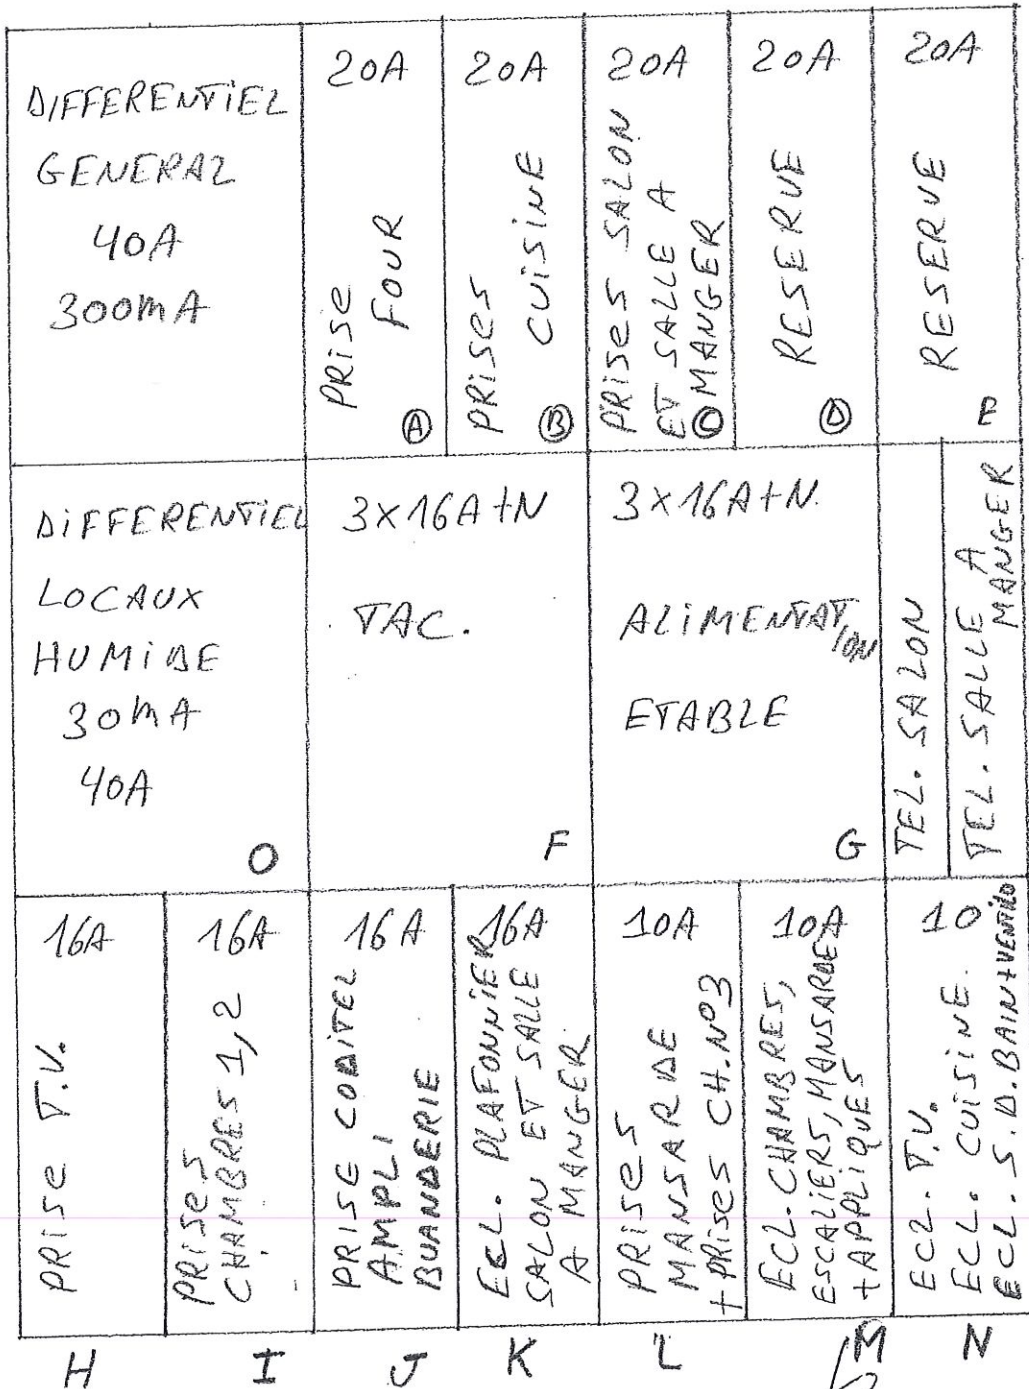 DIFFERENTIEL
GENERAL
40A
300mA
20A
PRISE
FOUR
A
20A
PRISES
CUISINE
B
20A
PRISES SALON
ET SALLE A
MANGER
C
20A
RESERVE
D
20A
RESERVE
E
DIFFERENTIEL
LOCAUX
HUMIDE
30mA
40A
O
3X16A+N
TAC.
F
3X16A+N.
ALIMENTATION
ETABLE
G
TEL. SALON
TEL. SALLE A
MANGER
16A
PRISE T.V.
H
16A
PRISES
CHAMBRES 1,2
I
16A
PRISE CODITEL
AMPLI
BUANDERIE
J
16A
ECL. PLAFONNIER
SALON ET SALLE
A MANGER
K
10A
PRISES
MANSARDE
+ PRISES CH. N°3
L
10A
ECL. CHAMBRES,
ESCALIERS, MANSARDE
+ APPLIQUES
M
10
ECL. T.V.
ECL. CUISINE.
ECL. S.D.BAIN+VENTILO
N